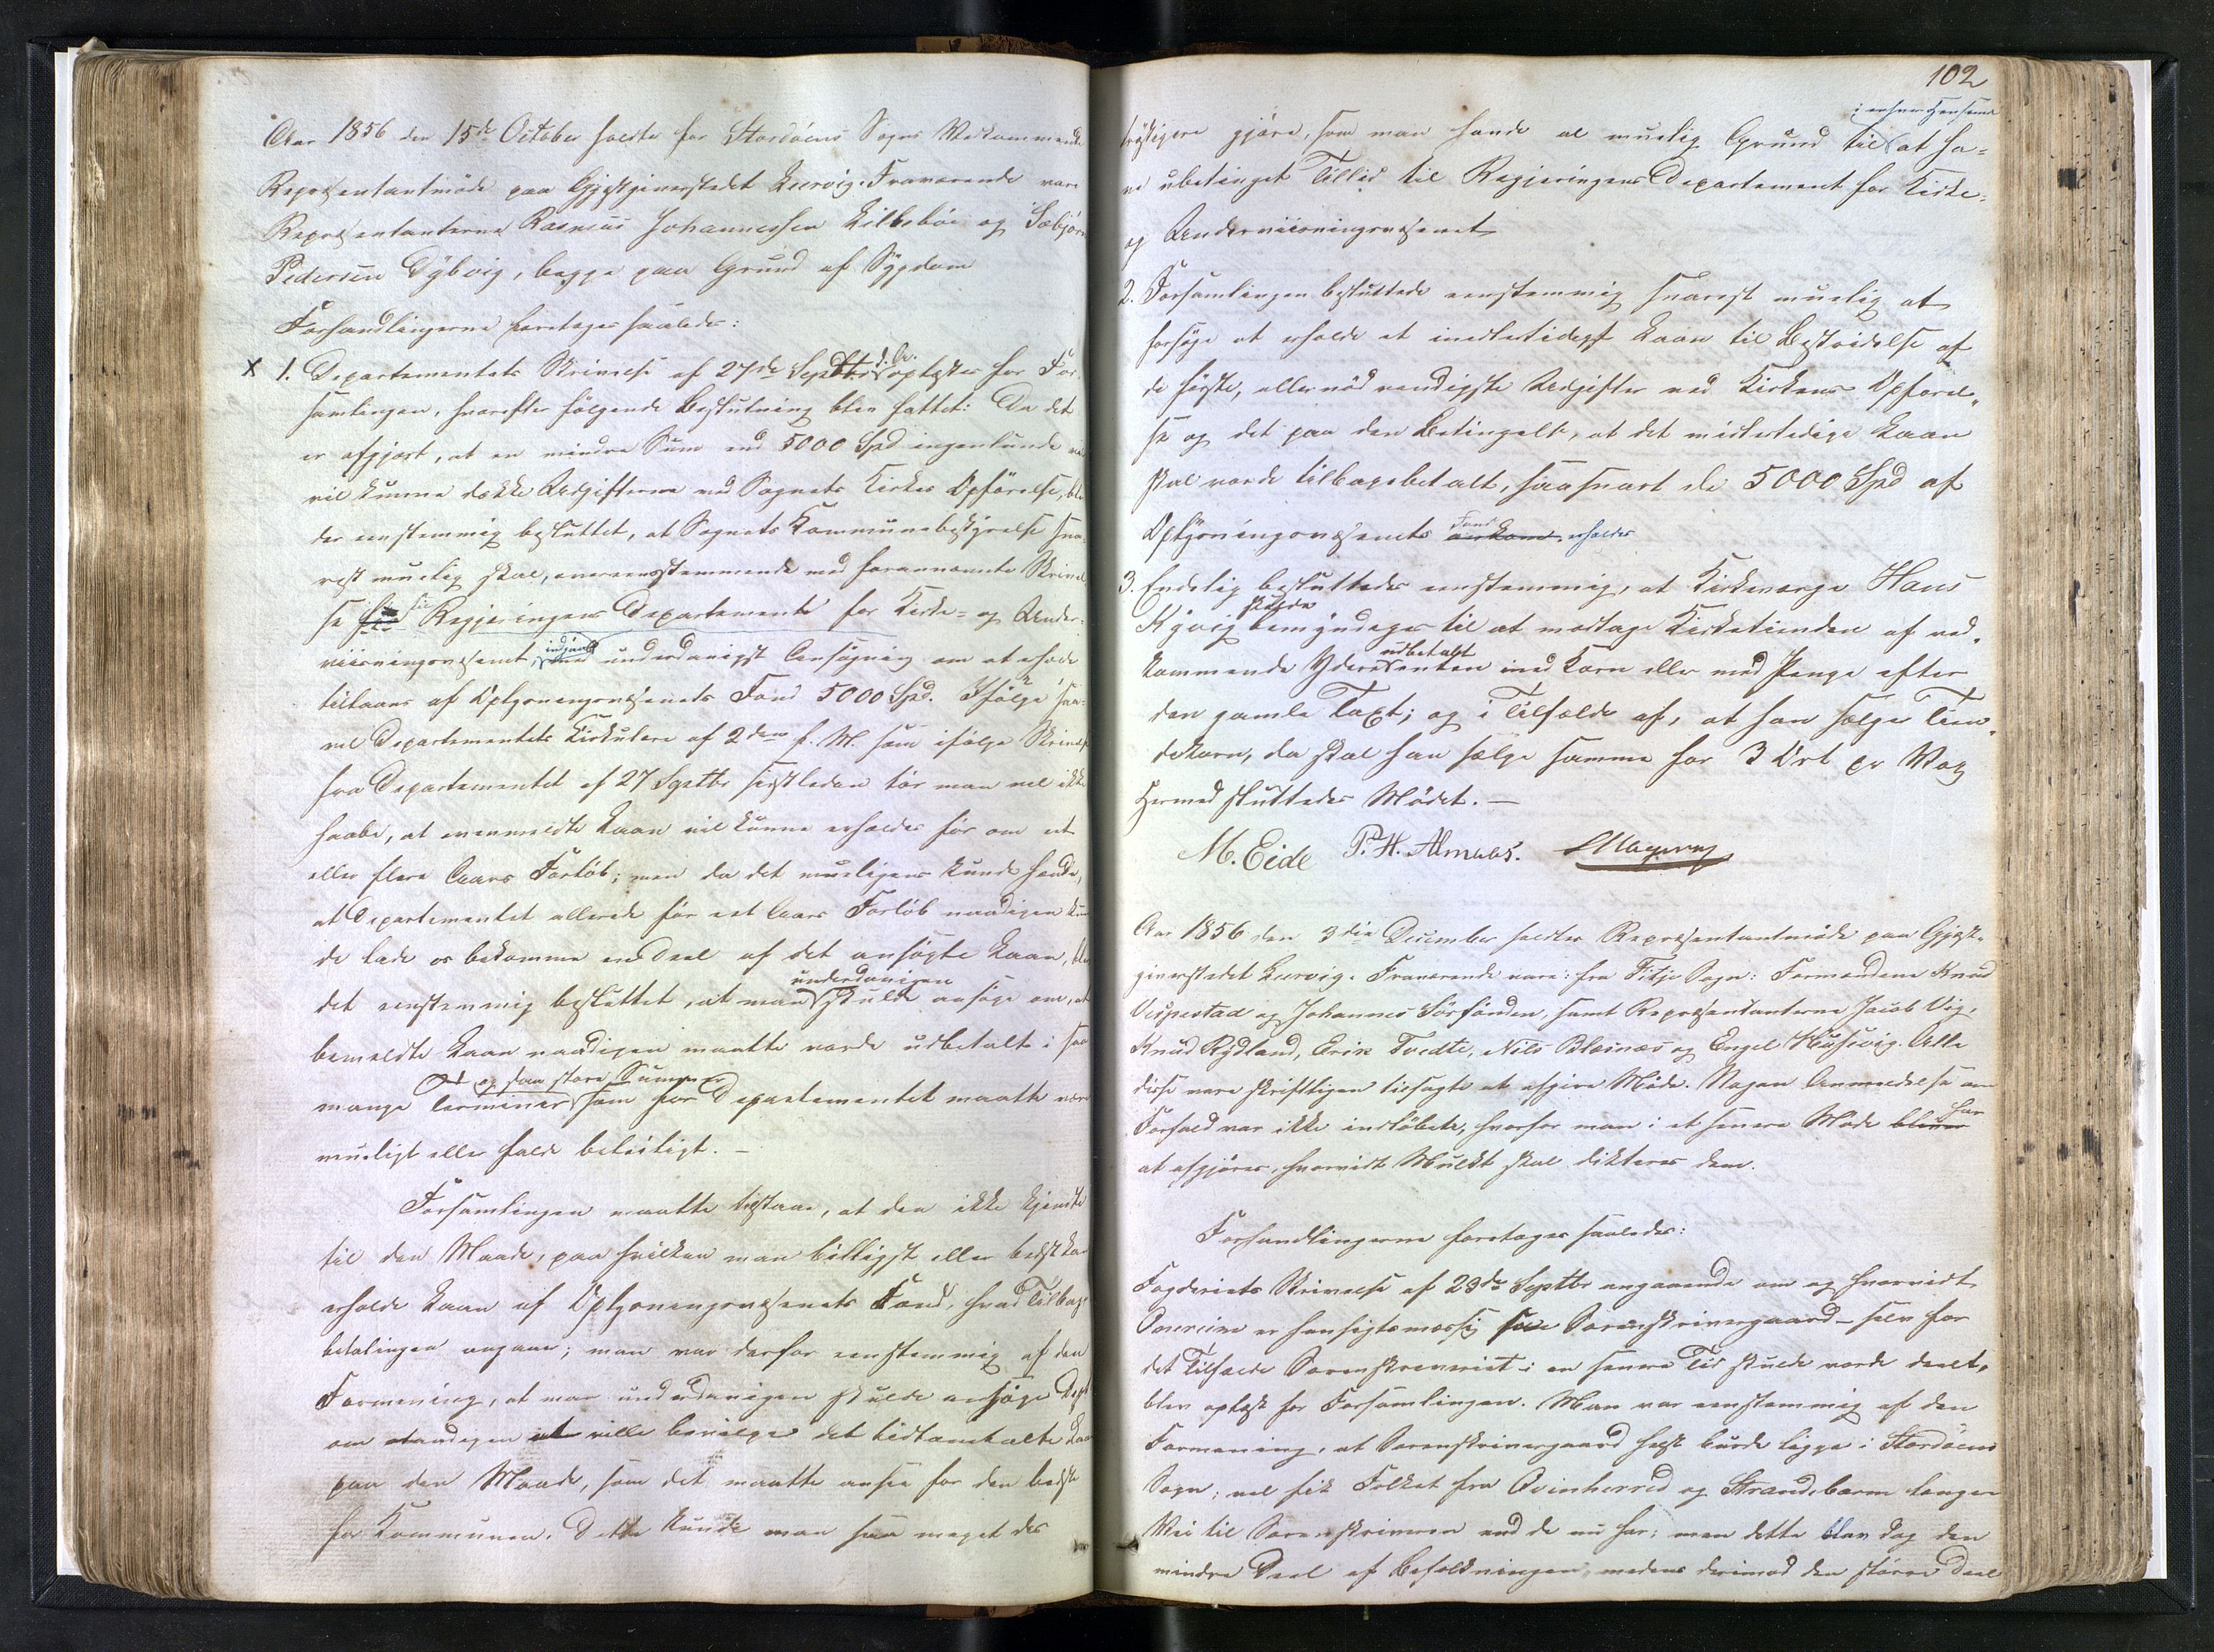 Aar 1856 den 15de October holdtes for Stordøens Sogns Vedkommende
Repræsentantmøde paa Gjæstgiverstedet Leervig. Fraværende vare
Repræsentanterne Rasmus Johannessen Lillebøe og Sæbjørn
Pedersen Dybvig, begge paa Grund af Sygdom
Forhandlingerne foretages saaledes:
X 1. Departementets Skrivelse af 27de Septbr d. A. oplæstes for For-
samlingen, hvorefter følgende Beslutning blev fattet: Da det
er afgjort, at en mindre Sum end 5000 Spd ingenlunde
vil kunne dække Udgifterne ved Sognets Kirkes Opførelse, blev
der eenstemmig besluttet, at Sognets Kommunebestyrelse sna-
rest muelig skal, overeensstemmende med forannævnte Skrivel
se til Regjeringens Departement for Kirke- og Under-
viisningsvæsenet, indgaae med underdanigst Ansøgning om at erholde
tillaans af Oplysningsvæsenets Fond 5000 Spd. Ifølge saa-
vel Departementets Cirkulære af 2den f. M. som ifølge Skrivelse
fra Departementet af 27 Septbr sidstleden tør man vel ikke
haabe, at ovenmeldte Laan vil kunne erholdes før om et
eller flere Aars Forløb; men da det mueligens kunde hænde,
at Departementet allerede før eet Aars Forløb naadigen kun
de lade os bekomme en Deel af det ansøgte Laan, blev
det eenstemmig besluttet, at man underdanigen skulde ansøge om, at
bemeldte Laan naadigen maatte vorde udbetalt i saa
mange Terminer og saa store Summer som for Departementet maatte være
mueligt eller falde beleiligt. —
Forsamlingen maatte tilstaae, at den ikke kjendte
til den Maade, paa hvilken man billigst eller bedst kan
erholde Laan af Oplysningsvæsenets Fond, hvad Tilbage
betalingen angaaer; man var derfor eenstemmig af den
Formening, at man underdanigen skulde ansøge Dept
om naadigen at ville bevilge det tidtomtalte Laan
paa den Maade, som det maatte ansee for den bedste
for Kommunen. Dette kunde man saa meget des
102
trøstigere gjøre, som man havde al muelig Grund til i enhver Henseende at ha-
ve ubetinget Tillid til Regjeringens Departement for Kirke-
og Underviisningsvæsenet
2. Forsamlingen besluttede eenstemmig snarest muelig at
forsøge at erholde et midlertidigt Laan til Bestridelse af
de første, allernødvendigste Udgifter ved Kirkens Opførel-
se og det paa den Betingelse, at det midlertidige Laan
skal vorde tilbagebetalt, saasnart de 5000 Spd af
Oplysningsvæsenets Fond erholdes
3. Endelig besluttedes eenstemmig, at Kirkeværge Hans
Hysvig skulde bemyndiges til at modtage Kirketienden af ved-
kommende Ydere udbetalt enten med Korn eller med Penge efter
den gamle Taxt; og i Tilfælde af, at han sælger Tien-
dekorn, da skal han sælge samme for 3 Ort pr Vog
Hermed sluttedes Mødet. —
M. Eide P. H. Almaas.
Aar 1856 den 3die December holdtes Repræsentantmøde paa Gjæst-
giverstedet Leervig. Fraværende vare: fra Fitje Sogn: Formændene Knud
Vespestad og Johannes Sørfonden, samt Repræsentanterne Jacob Vig,
Knud Rydland, Erik Tvedte, Nils Blæsnæs og Engel Huusevig. Alle
disse vare skriftligen tilsagte at afgive Møde. Nogen Anmeldelse om
Forfald var ikke indløbete, hvorfor man i et senere Møde har
at afgjøre, hvorvidt Mulkt skal dikteres dem.
Forhandlingerne foretages saaledes:
Fogderiets Skrivelse af 23de Septbr angaaende om og hvorvidt
er hensigtsmæssig Sorenskrivergaard — selv for
det Tilfælde Sorenskriveriet i en senere Tid skulde vorde deelt,
blev oplæst for Forsamlingen. Man var eenstemmig af den
Formening, at Sorenskrivergaard helst burde ligge i Stordøens
Sogn; vel fik Folket fra Qvinherred og Strandebarm længere
Vei til Sorenskriveren end de nu har; men dette blev dog den
mindre Deel af Befolkningen, medens derimod den større Deel